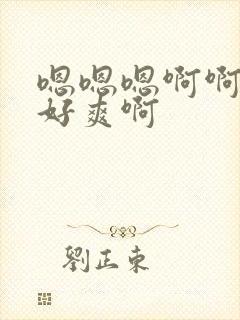 嗯嗯嗯啊啊
好爽啊
劉正東